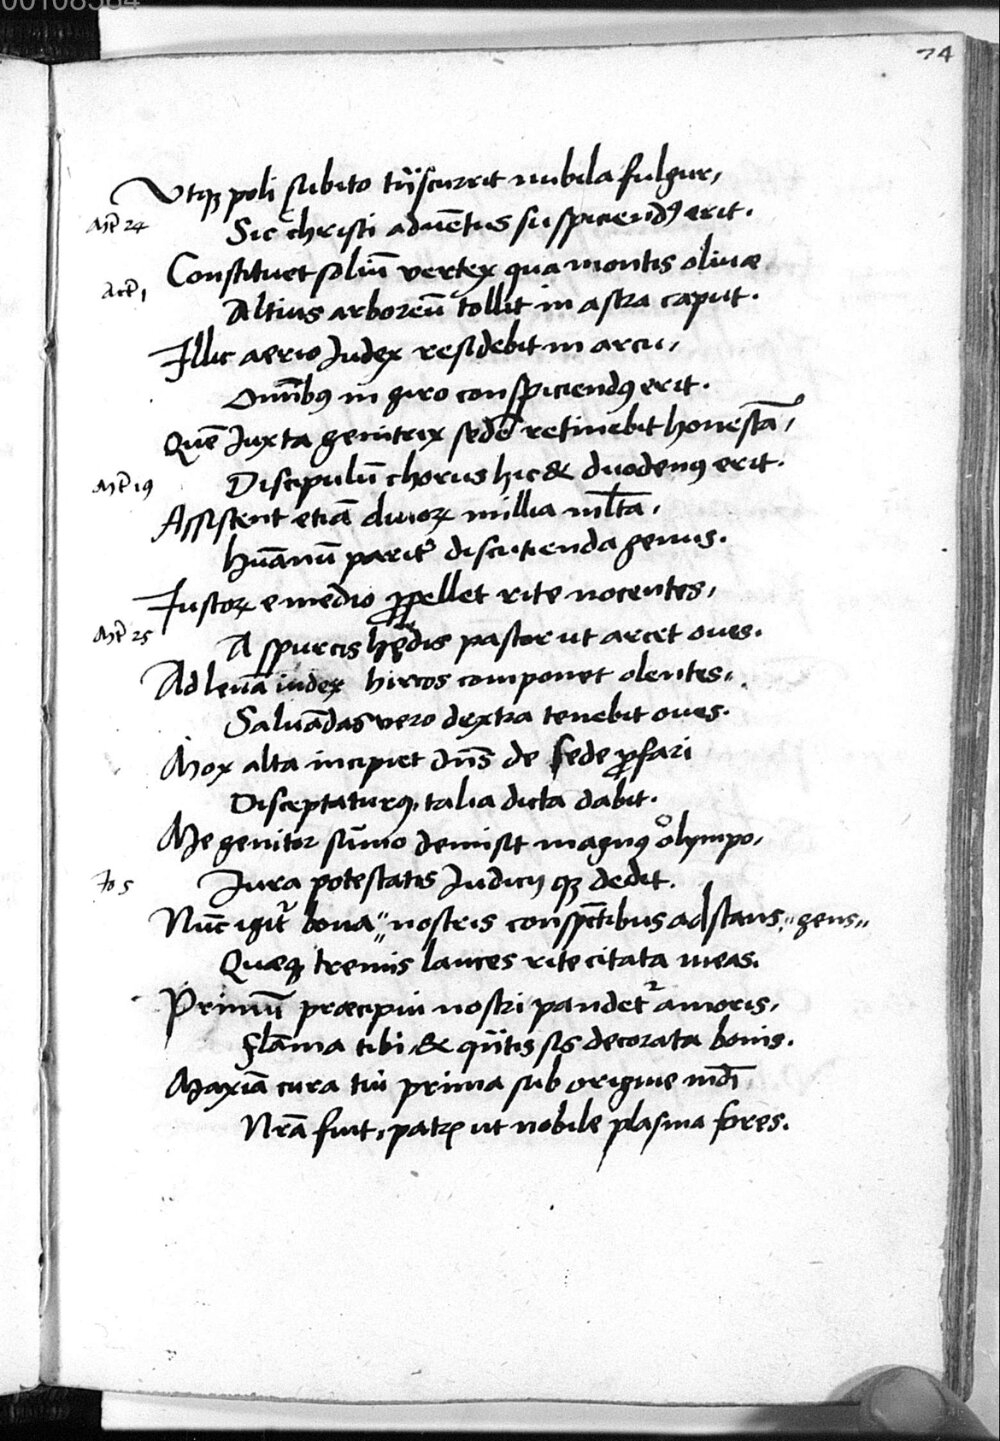 00108584
74
Utqꝫ poli subito trīscurrit nubila fulgur,
Mt̄ 24
Sic christi aduētus suspiciendꝰ erit.
Constituet soliū vertex qua montis oliuæ
Act̄ 1
Altius arboreū tollit in astra caput.
Illic aerio Iudex residebit in arcu,
Omībꝰ in giro conspiciendꝰ erit.
Quē Iuxta genitrix sedē retinebit honestā,
Mt̄ 19
Discipulū chorus hic & duodenꝰ erit.
Assistent etiā diuoꝝ millia ml̄ta,
Hūanū parit᷑ discutienda genus.
Iustoꝝ e medio ꝓpellet rite nocentes,
Mt̄ 25
A spurcis hędis pastor ut arcet oues.
Ad leuā iudex hircos componet olentes,
Saluādas vero dextra tenebit oues.
Mox alta incipiet dn̄s de sede ꝓfari
Disceptaturꝰ, talia dicta dabit.
Me genitor sūmo demisit magnꝰ olympo,
Io 5
Iura potestatis Iudicij qꝫ dedit.
Nūc igit᷑ bona" nostris conspectibus adstans," gens"
Quæqꝫ tremis lances rite citata meas.
Primū præcipui nostri pandet᷑ amoris,
Flāma tibi, & qn̄tis sis decorata bonis.
Maxīa cura tui prima sub origine mūdi
Nr̄a fuit, patꝝ ut nobile plasma fores.